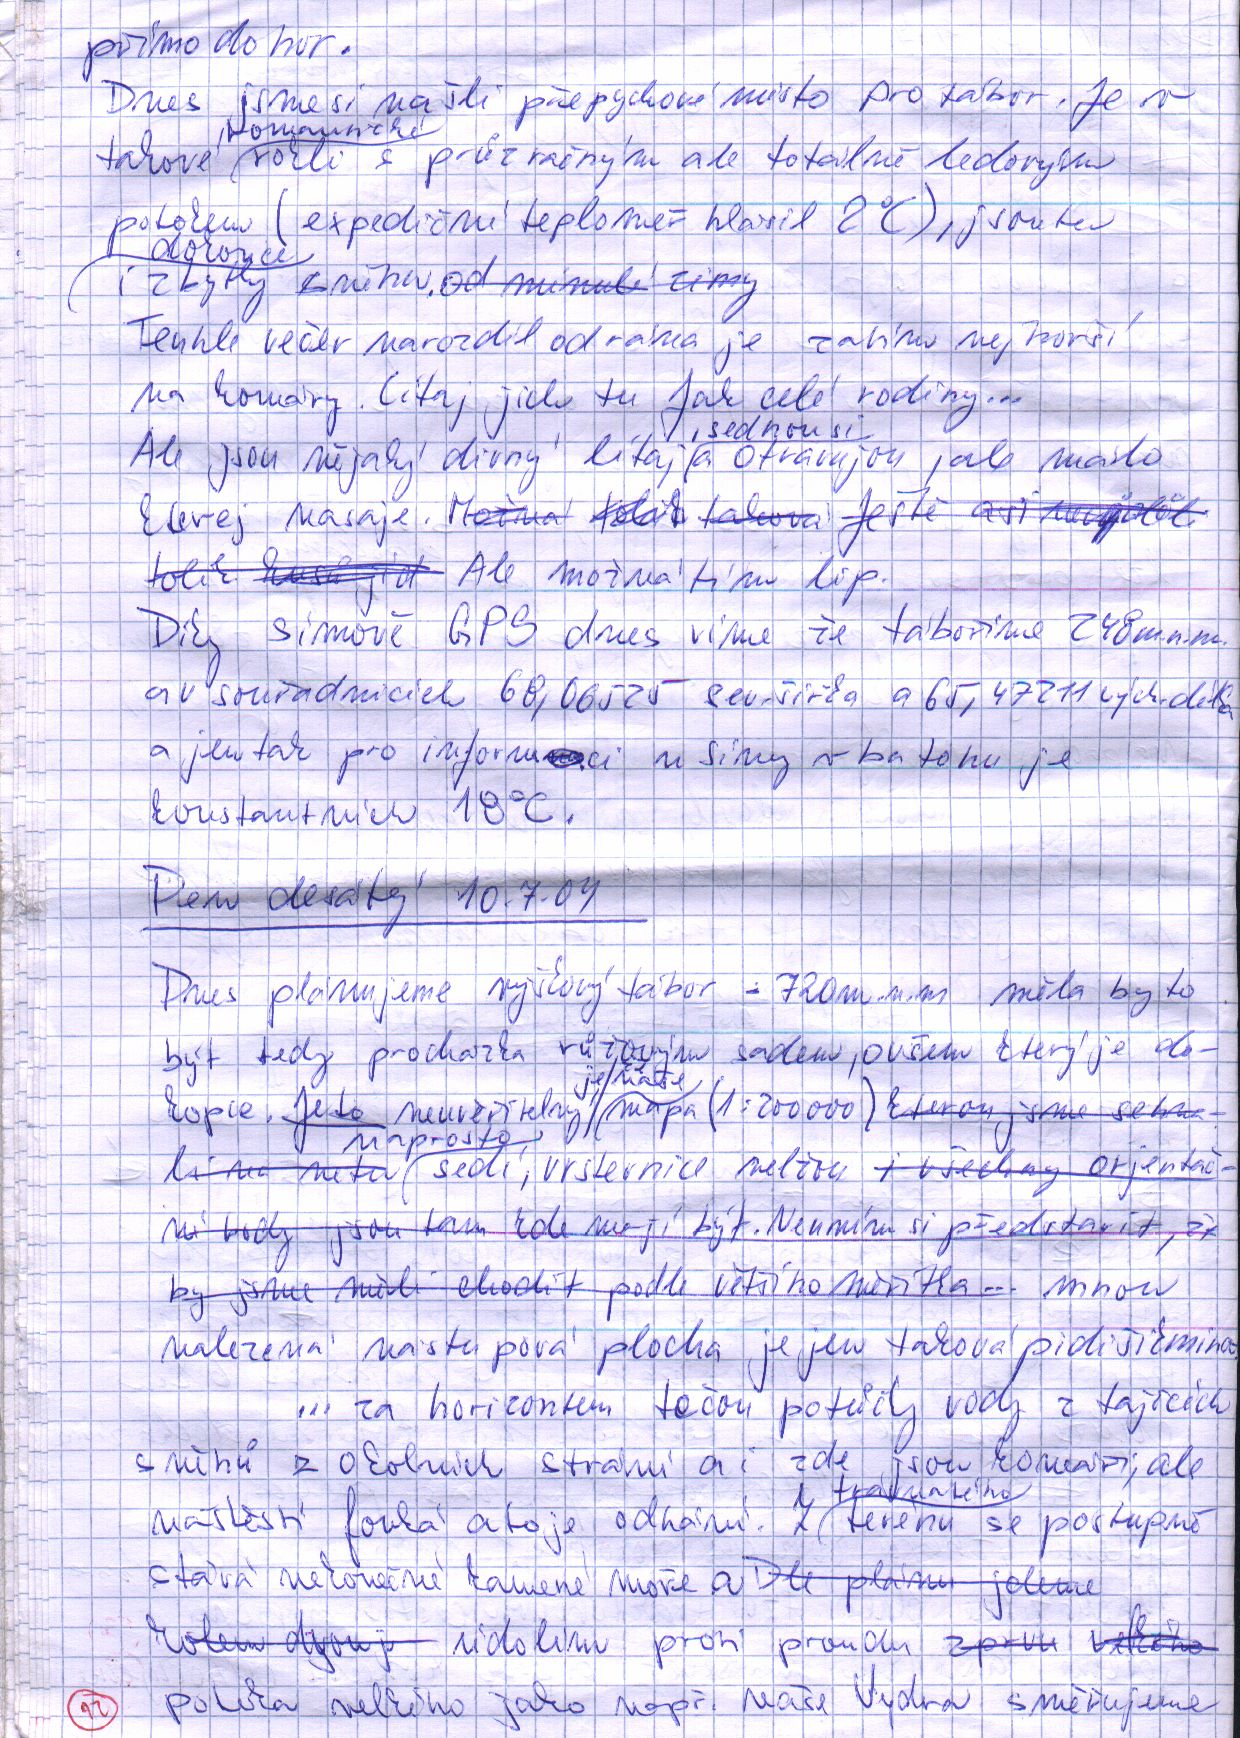 přímo do hor.
Dnes jsme si našli přepychové místo pro tábor. Je v
romantické
takové rokli s průzračným ale totálně ledovým
potokem (expediční teploměr hlásil 2°C), jsou tu
dokonce
i zbytky sněhu. od minulé zimy
Tenhle večer narozdíl od rána je zatím nejhorší
na komáry. Lítaj jich tu jak celé rodiny...
, sednou si
Ale jsou nějaký divný lítaj a otravujou, ale málo
kterej kasaje. Možná tolik taková Ještě asi
tolik Ale možná tím líp.
Díky Simově GPS dnes víme že táboříme 248m.n.m.
a v souřadnicích 68,06525 sev. šířka a 65,47211 vých. délka
a jen tak pro informaci u Simy v batohu je
konstantních 18°C.
Den desátý 10.7.04
Dnes plánujeme výškový tábor - 720m.n.m měla by to
být tedy procházka růžovým sadem, ovšem který je do-
je, naše
kopce. Je to neuvěřitelný mapa (1:200000) kterou jsme sehna-
naprosto
li na netu sedí, vrstevnice nelžou i všechny orjentač-
ní body jsou tam kde mají být. Neumím si představit, že
by jsme měli chodit podle většího měřítka... mnou
nalezená nástupová plocha je jen taková pidišikmina
... za horizontem tečou potůčky vody z tajících
sněhů z okolních strání a i zde jsou komáři, ale
travnatého
naštěstí fouká a to je odhání. Z terénu se postupně
stává nekonečné kamené moře a Dle plánu jdeme
kolem údolím proti proudu zprvu velkého
potoka velkého jako např. naše Vydra směřujeme
92